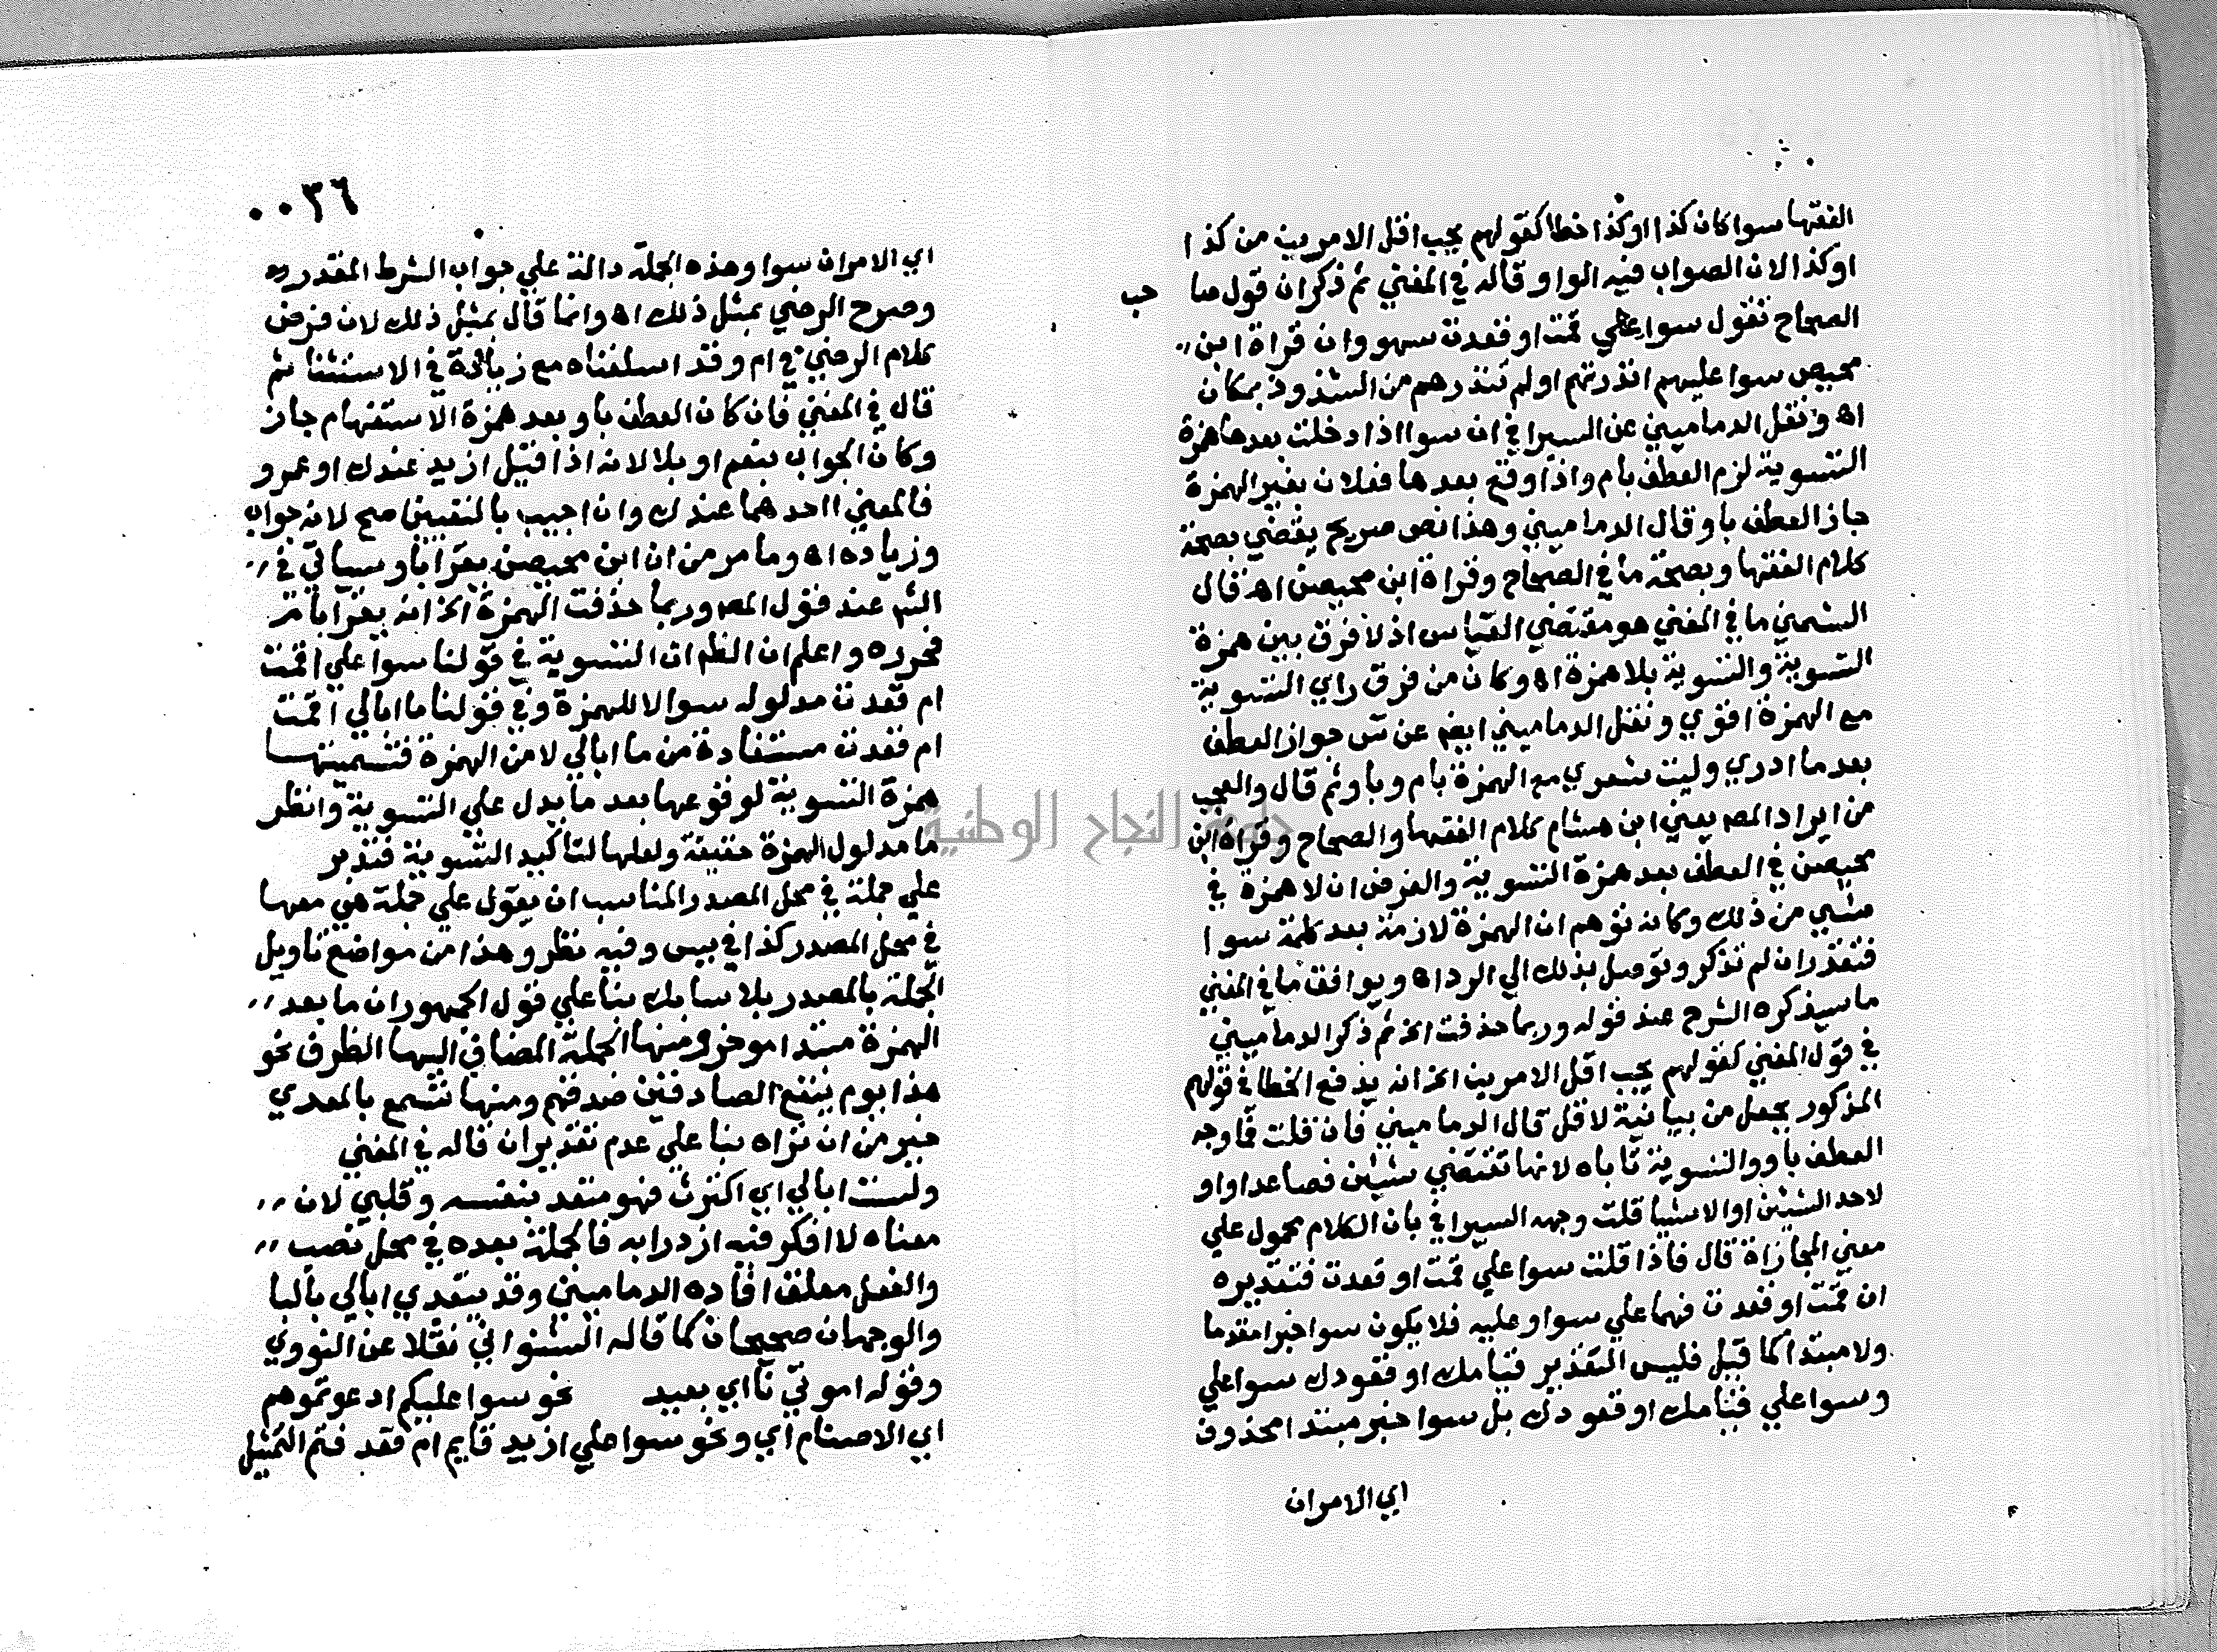 الفقها سوا كان كذا او كذا خطا كقولهم يجب اقل الامرين من كذا
او كذا لان الصواب فيه الواو قاله في المغني ثم ذكر ان قول صا حب
الصحاح تقول سوا علي قمت او قعدت سهو وان قراة ابن
محيصن سوا عليهم انذرتهم او لم تنذرهم من الشذوذ بمكان
اه ونقل الدماميني عن السيرافي ان سوا اذا دخلت بعدها همزة
التسوية لزم العطف بام واذا وقع بعدها فعلان بغير الهمزة
جاز العطف باو قال الدماميني وهذا نص صريح يقضي بصحة
كلام الفقها وبصحة ما في الصحاح وقراة ابن محيصن اه قال
الشمني ما في المغني هو مقتضي القياس اذ لا فرق بين همزة
التسوية والتسوية بلا همزة اه وكان من فرق راي التسوية
مع الهمزة اقوي ونقل الدماميني ايضم عن س جواز العطف
بعد ما ادري وليت شعري مع الهمزة بام وباو ثم قال والعجب
من ايراد المص يعني ابن هشام كلام الفقها والصحاح وقراة ابن
محيصن في العطف بعد همزة التسوية والفرض ان لا همزة في
شيي من ذلك وكانه توهم ان الهمزة لازمة بعد كلمة سوا
فتقدر ان لم تذكر وتوصل بذلك الي الرد اه ويوافق ما في المغني
ما سيذكره الشرح عند قوله وربما حذفت الخ ثم ذكر الدماميني
في قول المغني كقولهم يجب اقل الامرين الخ انه يدفع الخطا في قولهم
المذكور بجعل من بيانية لا قل قال الدماميني فان قلت فما وجه
العطف باو والتسوية تاباه لانها تقتضي شيئين فصاعدا واو
لاحد الشيئين او الاشيا قلت وجهه السيرافي بان الكلام محمول علي
معني المجازاة قال فاذا قلت سوا علي قمت او قعدت فتقديره
ان قمت او قعدت فهما علي سوا وعليه فلا يكون سوا خبرا مقدما
ولا مبتدا كما قيل فليس التقدير قيامك او قعودك سوا علي
وسوا علي قيامك او قعودك بل سوا خبر مبتدا محذوف
اي الامران
٠٠٣٦
اي الامران سوا وهذه الجملة دالة علي جواب الشرط المقدر
وصرح الرضي بمثل ذلك اه وانما قال بمثل ذلك لان فرض
كلام الرضي في ام وقد اسلفناه مع زيادة في الاستثنا ثم
قال في المغني فان كان العطف باو بعد همزة الاستفهام جاز
وكان الجواب بنعم او بلا لانه اذا قيل ازيد عندك او عمرو
فالمعني ااحدهما عندك وان اجيب بالتعيين صح لانه جواب
وزياده اه وما مر من ان ابن محيصن يقرا باو سياتي في
الشم عند قول المص وربما حذفت الهمزة الخ انه يقرا بام
فحرره واعلم ان الظم ان التسوية في قولنا سوا علي اقمت
ام قعدت مدلوله سوا لا للهمزة وفي قولنا ما ابالي اقمت
ام قعدت مستفادة من ما ابالي لا من الهمزة فتسميتها
همزة التسوية لوقوعها بعد ما يدل علي التسوية وانظر
ما مدلول الهمزة حقيقة ولعلها لتاكيد التسوية فتدبر
علي جملة في محل المصدر المناسب ان يقول علي جملة هي معها
في محل المصدر كذا في يس وفيه نظر وهذا من مواضع تاويل
الجملة بالمصدر بلا سابك بنا علي قول الجمهور ان ما بعد
الهمزة مبتدا موخر ومنها الجملة المضاف اليها الظرف نحو
هذا يوم ينفع الصادقين صدقهم ومنها تسمع بالمعدي
خير من ان تراه بنا علي عدم تقدير ان قاله في المغني
ولست ابالي اي اكترث فهو متعد بنفسه وقلبي لان
معناه لا افكر فيه ازدرا به فالجملة بعده في محل نصب
والفعل معلق افاده الدماميني وقد يتعدي ابالي بالبا
والوجهان صحيحان كما قاله الشنواني نقلا عن النووي
وقوله اموتي ناا اي بعيد نحو سوا عليكم ادعوتموهم
اي الاصنام اي ونحو سوا علي ازيد قايم ام قعد فتم التمثيل
جامعة النجاح الوطنية